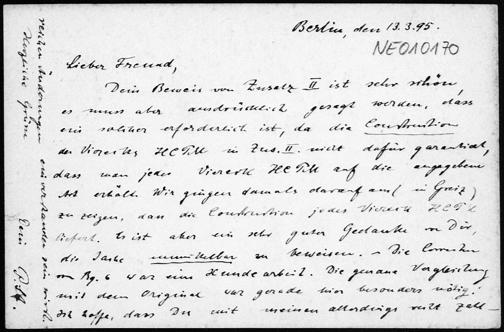 Berlin, den 13.3.95.
NE010170
Lieber Freund,
Dein Beweis von Zusatz II ist sehr schön,
es muss aber ausdrücklich gesagt werden, dass
ein solcher erforderlich ist, da die Construction
des Vierecks HCTK in Zus. II. nicht dafür garantirt,
dass man jedes Viereck HCTK auf die angegebene
Art erhält. Wir gingen damals darauf aus (in Greiz)
zu zeigen, dass die Construction jedes Viereck HCTK
liefert. Es ist aber ein sehr guter Gedanke von Dir,
die Sache unmittelbar zu beweisen. – Die Correctur
von Bg. 6 war eine Hundearbeit. Die genaue Vergleichung
mit dem Original war gerade hier besonders nötig.
Ich hoffe, dass Du mit meinen allerdings recht zahl-
reichen Änderungen einverstanden sein wirst.
Herzliche Grüsse
Dein